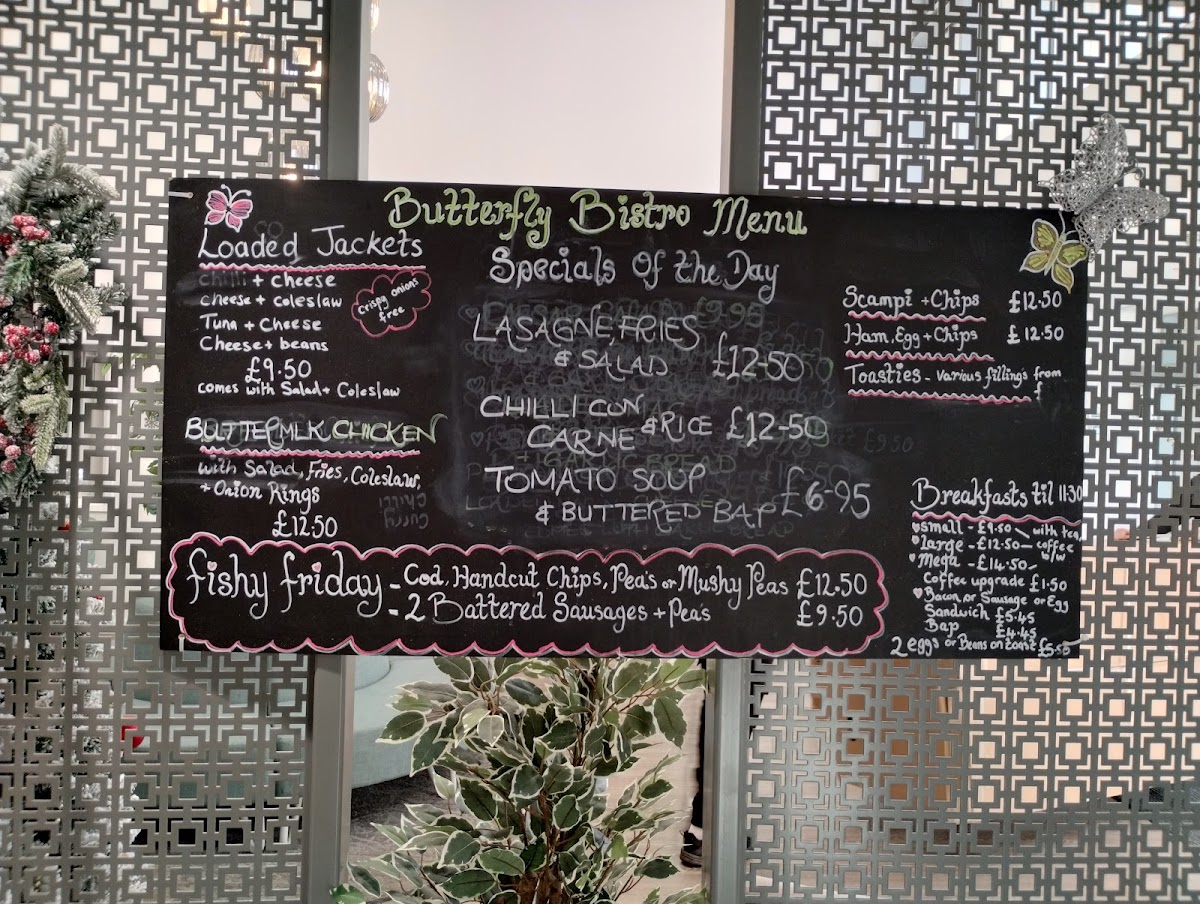 Butterfly Bistro Menu
Loaded Jackets
Chilli + Cheese
Cheese + Coleslaw
Tuna + Cheese
Cheese + beans
£9.50
comes with Salad + Coleslaw
Crispy onions
free
BUTTERMLK CHICKEN
with Salad, Fries, Coleslaw,
+ Onion Rings
£12.50
Specials Of the Day
LASAGNE, FRIES
& SALAD £12-50
CHILLI CON
CARNE & RICE £12-50
TOMATO SOUP
& BUTTERED BAP £6-95
Scampi + Chips £12.50
Ham, Egg + Chips £12.50
Toasties - various filling's from
£
Breakfasts til 11:30
Small - £9.50 - with tea,
Large - £12.50 - coffee
Mega - £14.50-
Coffee upgrade £1.50
Bacon, or Sausage or Egg
Sandwich £5.45
Bap £4.45
2 eggs or Beans on toast £5.50
fishy friday - Cod, Handcut Chips, Pea's or Mushy Peas £12.50
- 2 Battered Sausages + Pea's £9.50